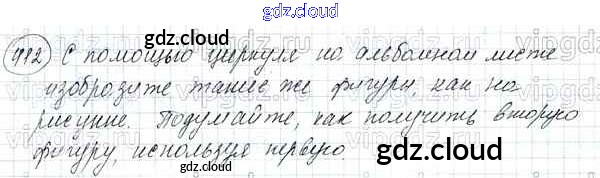 gdz.cloud
912 С помощью циркуля на альбомном листе
изобразите такие же фигуры, как на
рисунке. Подумайте, как получить вторую
фигуру, используя первую.
gdz.cloud
gdz.cloud
gdz.cloud
gdz.cloud